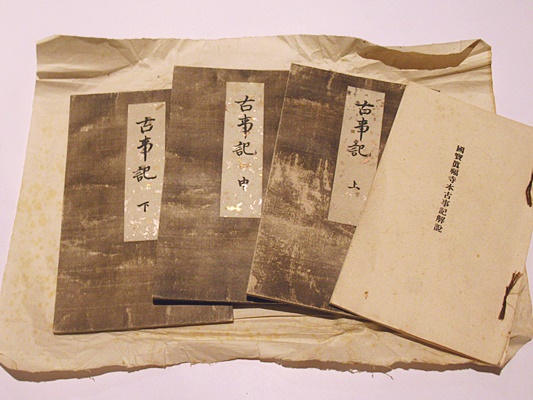 古事記 下
古事記 中
古事記 上
國寶眞福寺本古事記解說